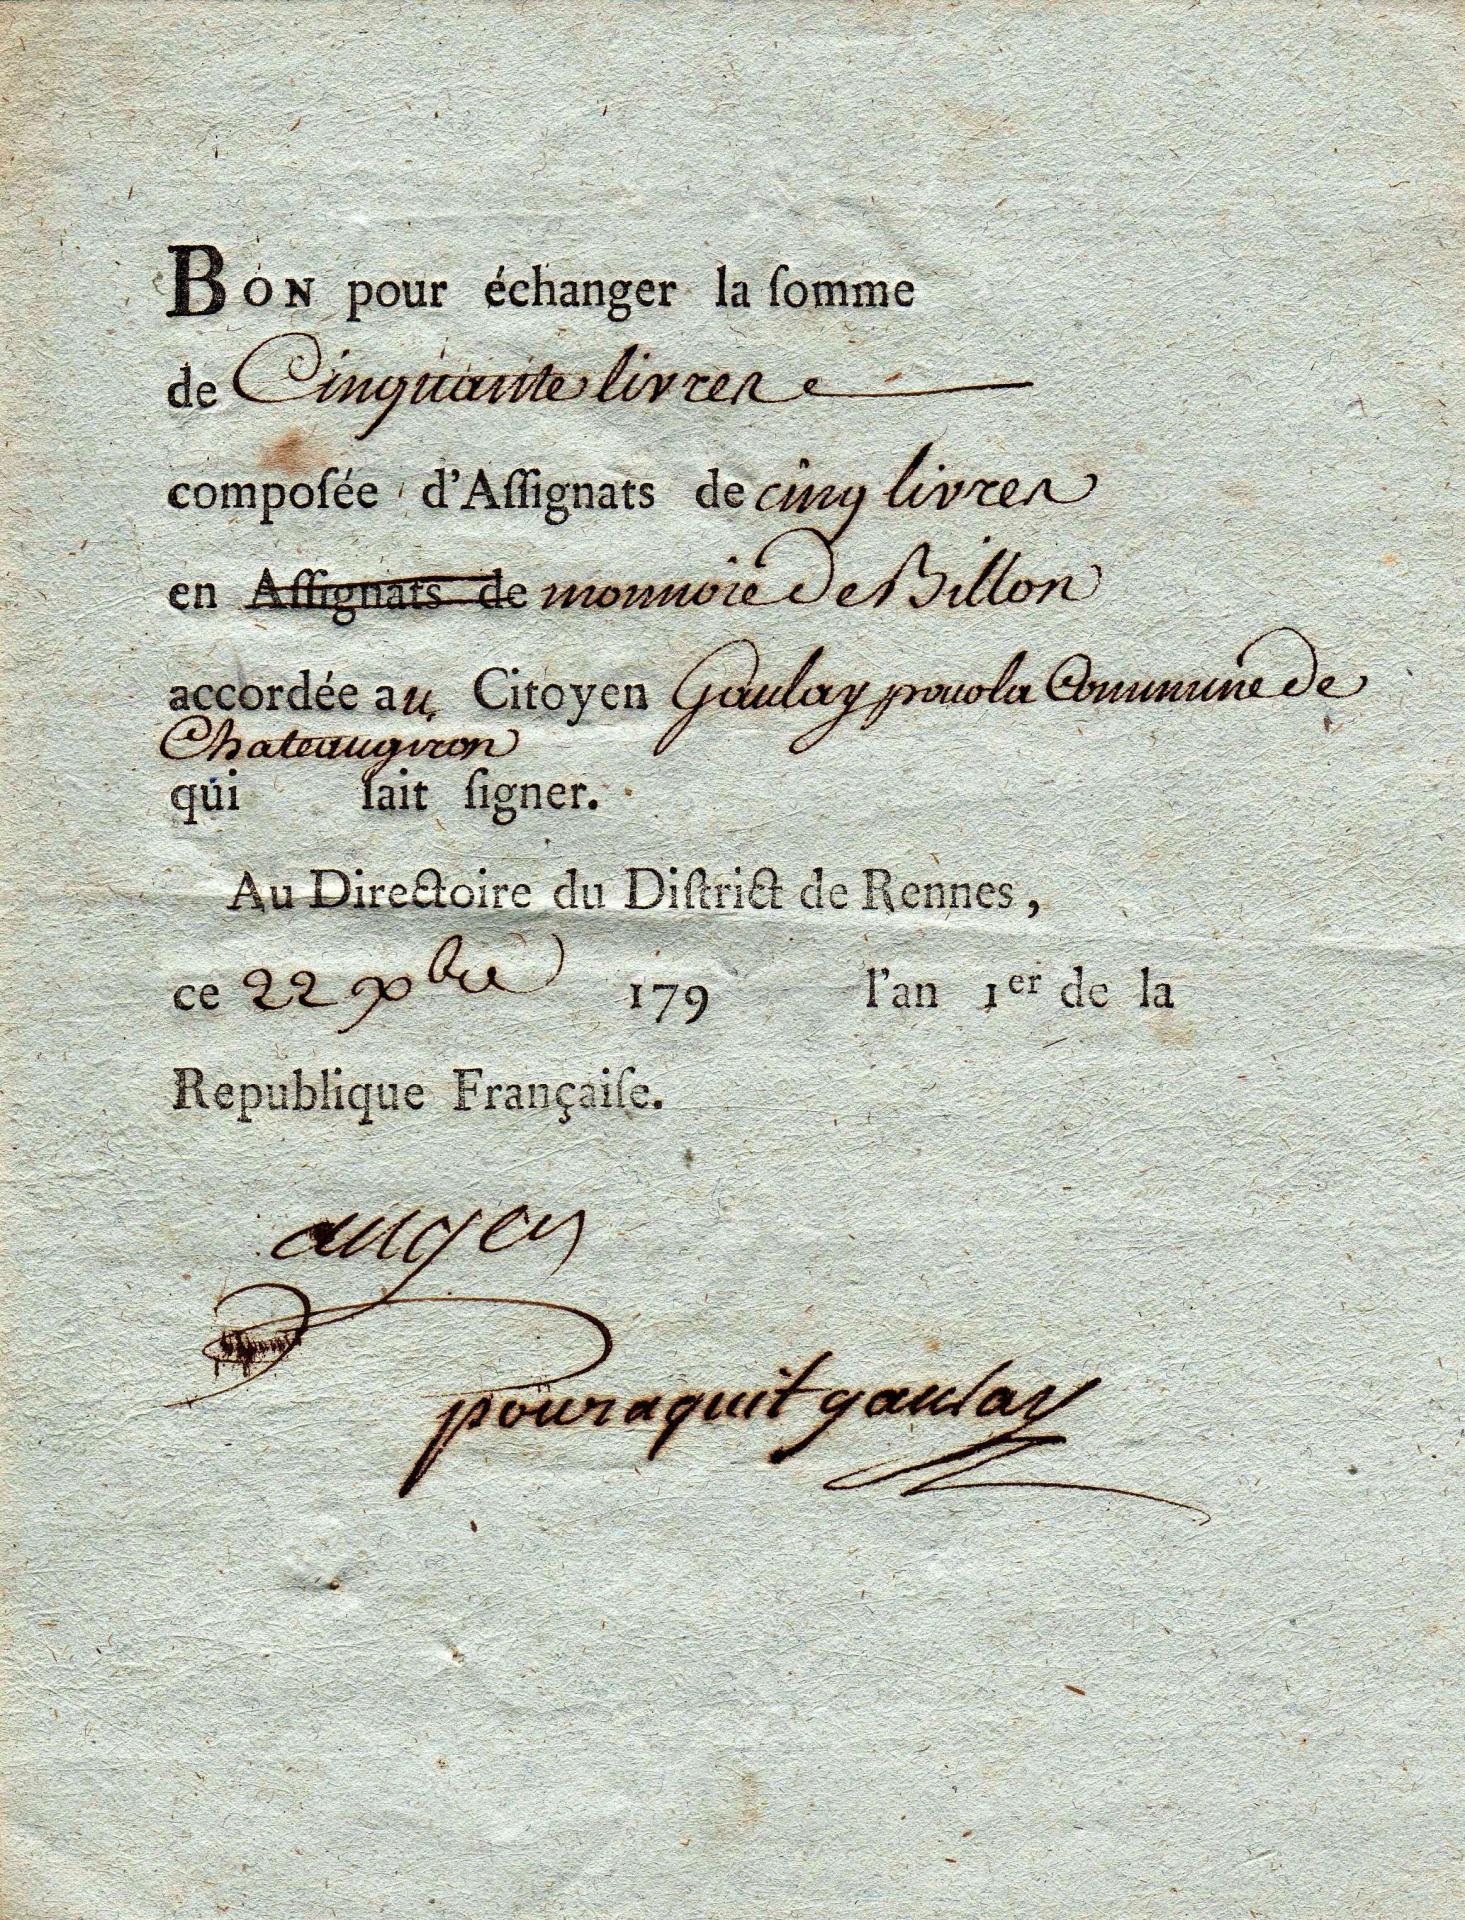 BON pour échanger la ſomme
de Cinquante livres
compoſée d'Aſſignats de cinq livres
en Aſſignats de monnoie de Billon
accordée au Citoyen Gaulay pour la Commune de
Chateaugiron
qui ſait ſigner.
Au Directoire du Diſtrict de Rennes,
ce 22 xbre 179 l'an 1er de la
Republique Françaiſe.
pour aquit gaulay